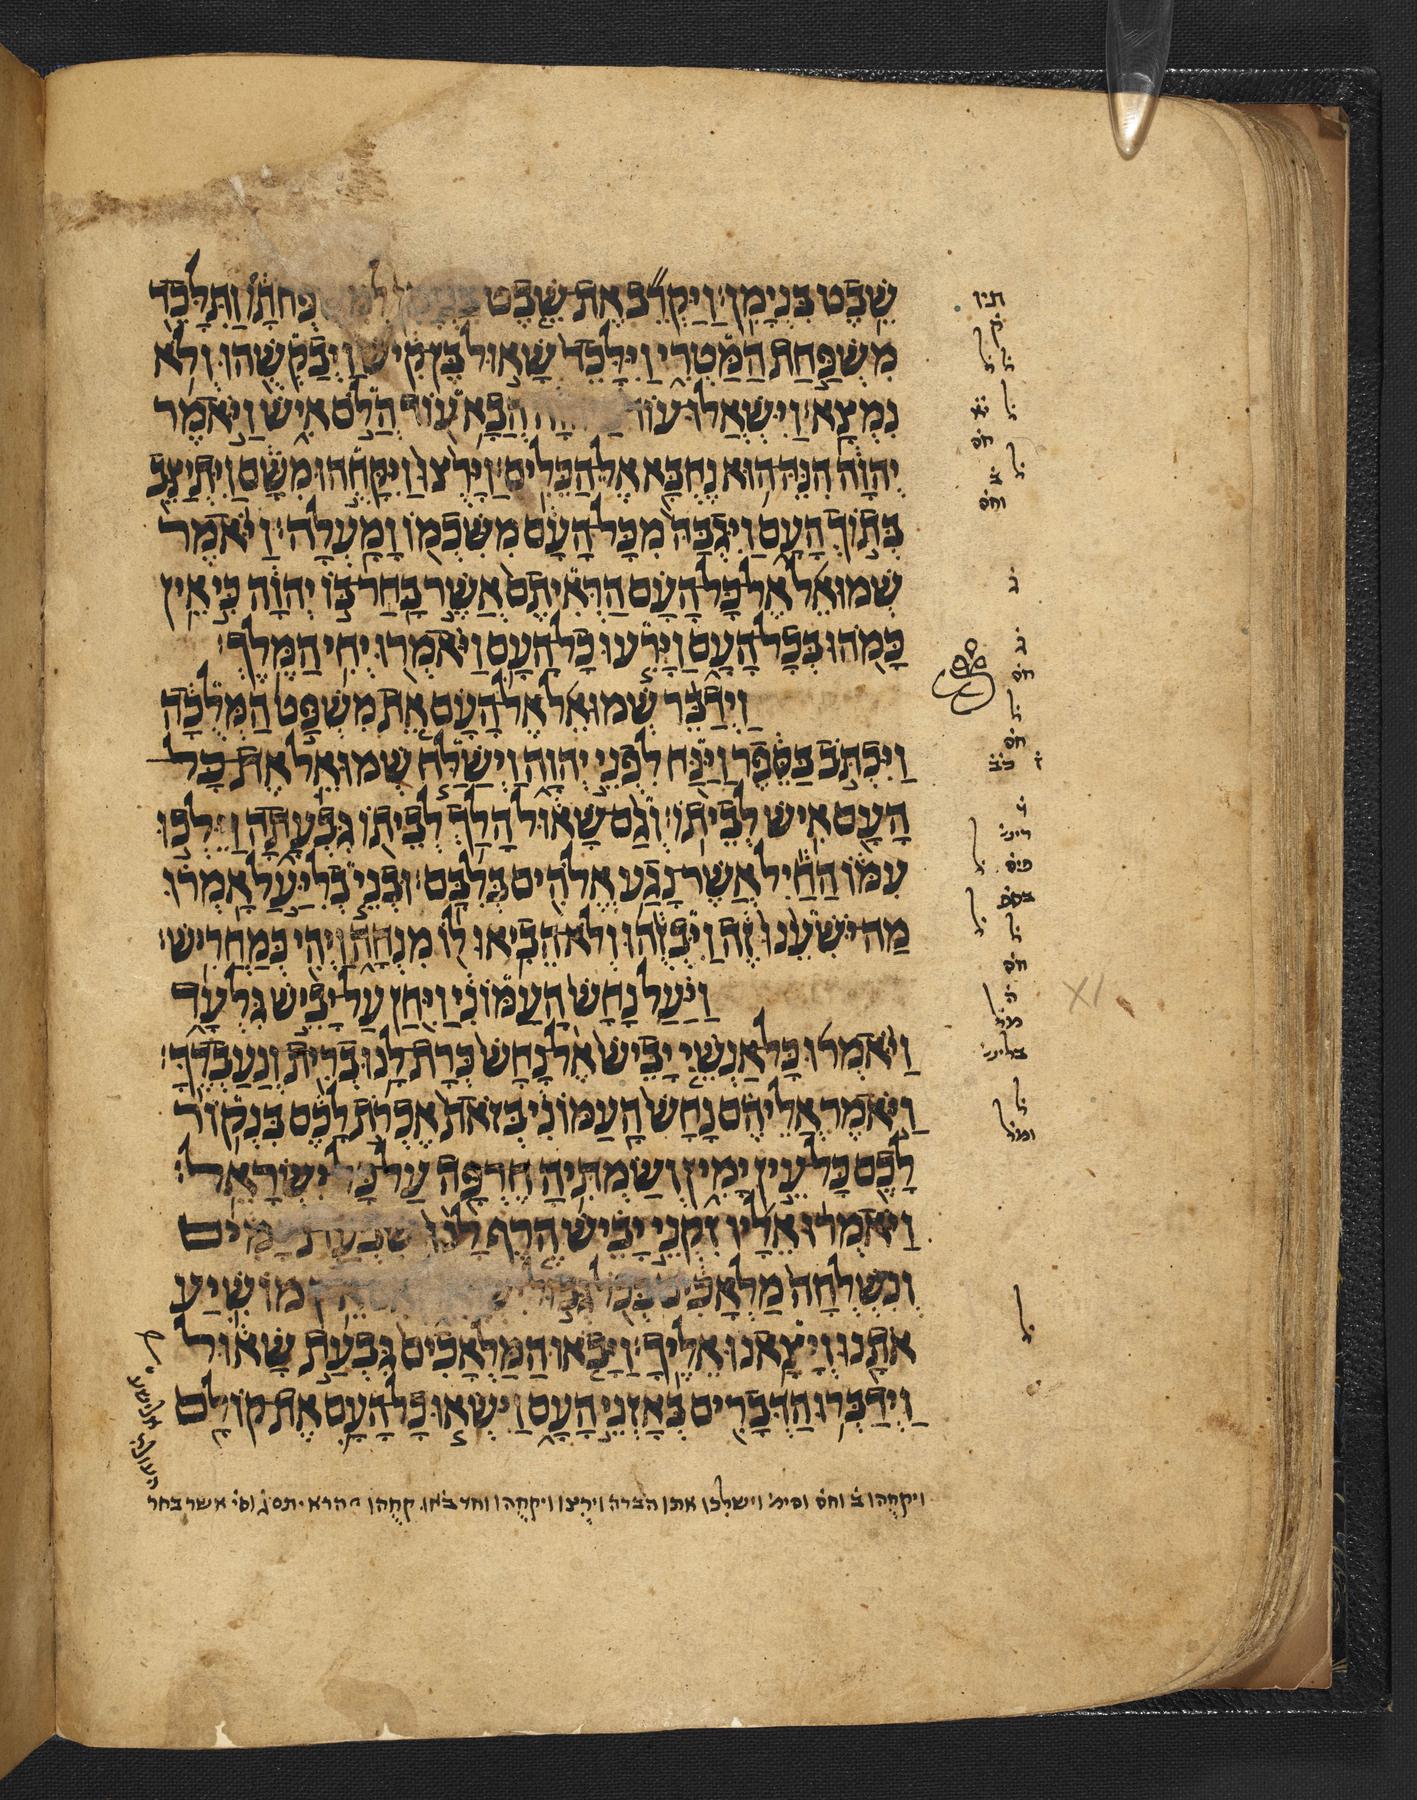 שֵׁבֶט בִּנְיָמִן׃ וַיַּקְרֵב אֶת שֵׁבֶט וַתִּלָּכֵד
מִשְׁפַּחַת הַמַּטְרִי וַיִּלָּכֵד שָׁאוּל בֶּן קִישׁ וַיְבַקְשֻׁהוּ וְלֹא
נִמְצָא׃ וַיִּשְׁאֲלוּ עוֹד הֲבָא עוֹד הֲלֹם אִישׁ וַיֹּאמֶר
יְהוָה הִנֵּה הוּא נֶחְבָּא אֶל הַכֵּלִים׃ וַיָּרֻצוּ וַיִּקָּחֻהוּ מִשָּׁם וַיִּתְיַצֵּב
בְּתוֹךְ הָעָם וַיִּגְבַּהּ מִכָּל הָעָם מִשִּׁכְמוֹ וָמָעְלָה׃ וַיֹּאמֶר
שְׁמוּאֵל אֶל כָּל הָעָם הַרְּאִיתֶם אֲשֶׁר בָּחַר בּוֹ יְהוָה כִּי אֵין
כָּמֹהוּ בְּכָל הָעָם וַיָּרִעוּ כָל הָעָם וַיֹּאמְרוּ יְחִי הַמֶּלֶךְ׃
וַיְדַבֵּר שְׁמוּאֵל אֶל הָעָם אֵת מִשְׁפַּט הַמְּלֻכָה
וַיִּכְתֹּב בַּסֵּפֶר וַיַּנַּח לִפְנֵי יְהוָה וַיְשַׁלַּח שְׁמוּאֵל אֶת כָּל
הָעָם אִישׁ לְבֵיתוֹ׃ וְגַם שָׁאוּל הָלַךְ לְבֵיתוֹ גִּבְעָתָה וַיֵּלְכוּ
עִמּוֹ הַחַיִל אֲשֶׁר נָגַע אֱלֹהִים בְּלִבָּם׃ וּבְנֵי בְלִיַּעַל אָמְרוּ
מַה יֹּשִׁעֵנוּ זֶה וַיִּבְזֻהוּ וְלֹא הֵבִיאוּ לוֹ מִנְחָה וַיְהִי כְּמַחֲרִישׁ׃
וַיַּעַל נָחָשׁ הָעַמּוֹנִי וַיִּחַן עַל יָבֵישׁ גִּלְעָד
וַיֹּאמְרוּ כָּל אַנְשֵׁי יָבֵישׁ אֶל נָחָשׁ כְּרָת לָנוּ בְרִית וְנַעַבְדֶךָּ׃
וַיֹּאמֶר אֲלֵיהֶם נָחָשׁ הָעַמּוֹנִי בְּזֹאת אֶכְרֹת לָכֶם בִּנְקוֹר
לָכֶם כָּל עֵין יָמִין וְשַׂמְתִּיהָ חֶרְפָּה עַל כָּל יִשְׂרָאֵל׃
וַיֹּאמְרוּ אֵלָיו זִקְנֵי יָבֵישׁ הֶרֶף לָנוּ שִׁבְעַת יָמִים
וְנִשְׁלְחָה מַלְאָכִים בְּכֹל גְּבוּל מוֹשִׁיעַ
אֹתָנוּ וְיָצָאנוּ אֵלֶיךָ׃ וַיָּבֹאוּ הַמַּלְאָכִים גִּבְעַת שָׁאוּל
וַיְדַבְּרוּ הַדְּבָרִים בְּאָזְנֵי הָעָם וַיִּשְׂאוּ כָל הָעָם אֶת קוֹלָם
ויקחהו ב וחס וישלכו אתו וירצו ויקחהו וחד באו קחהו אשר בחר